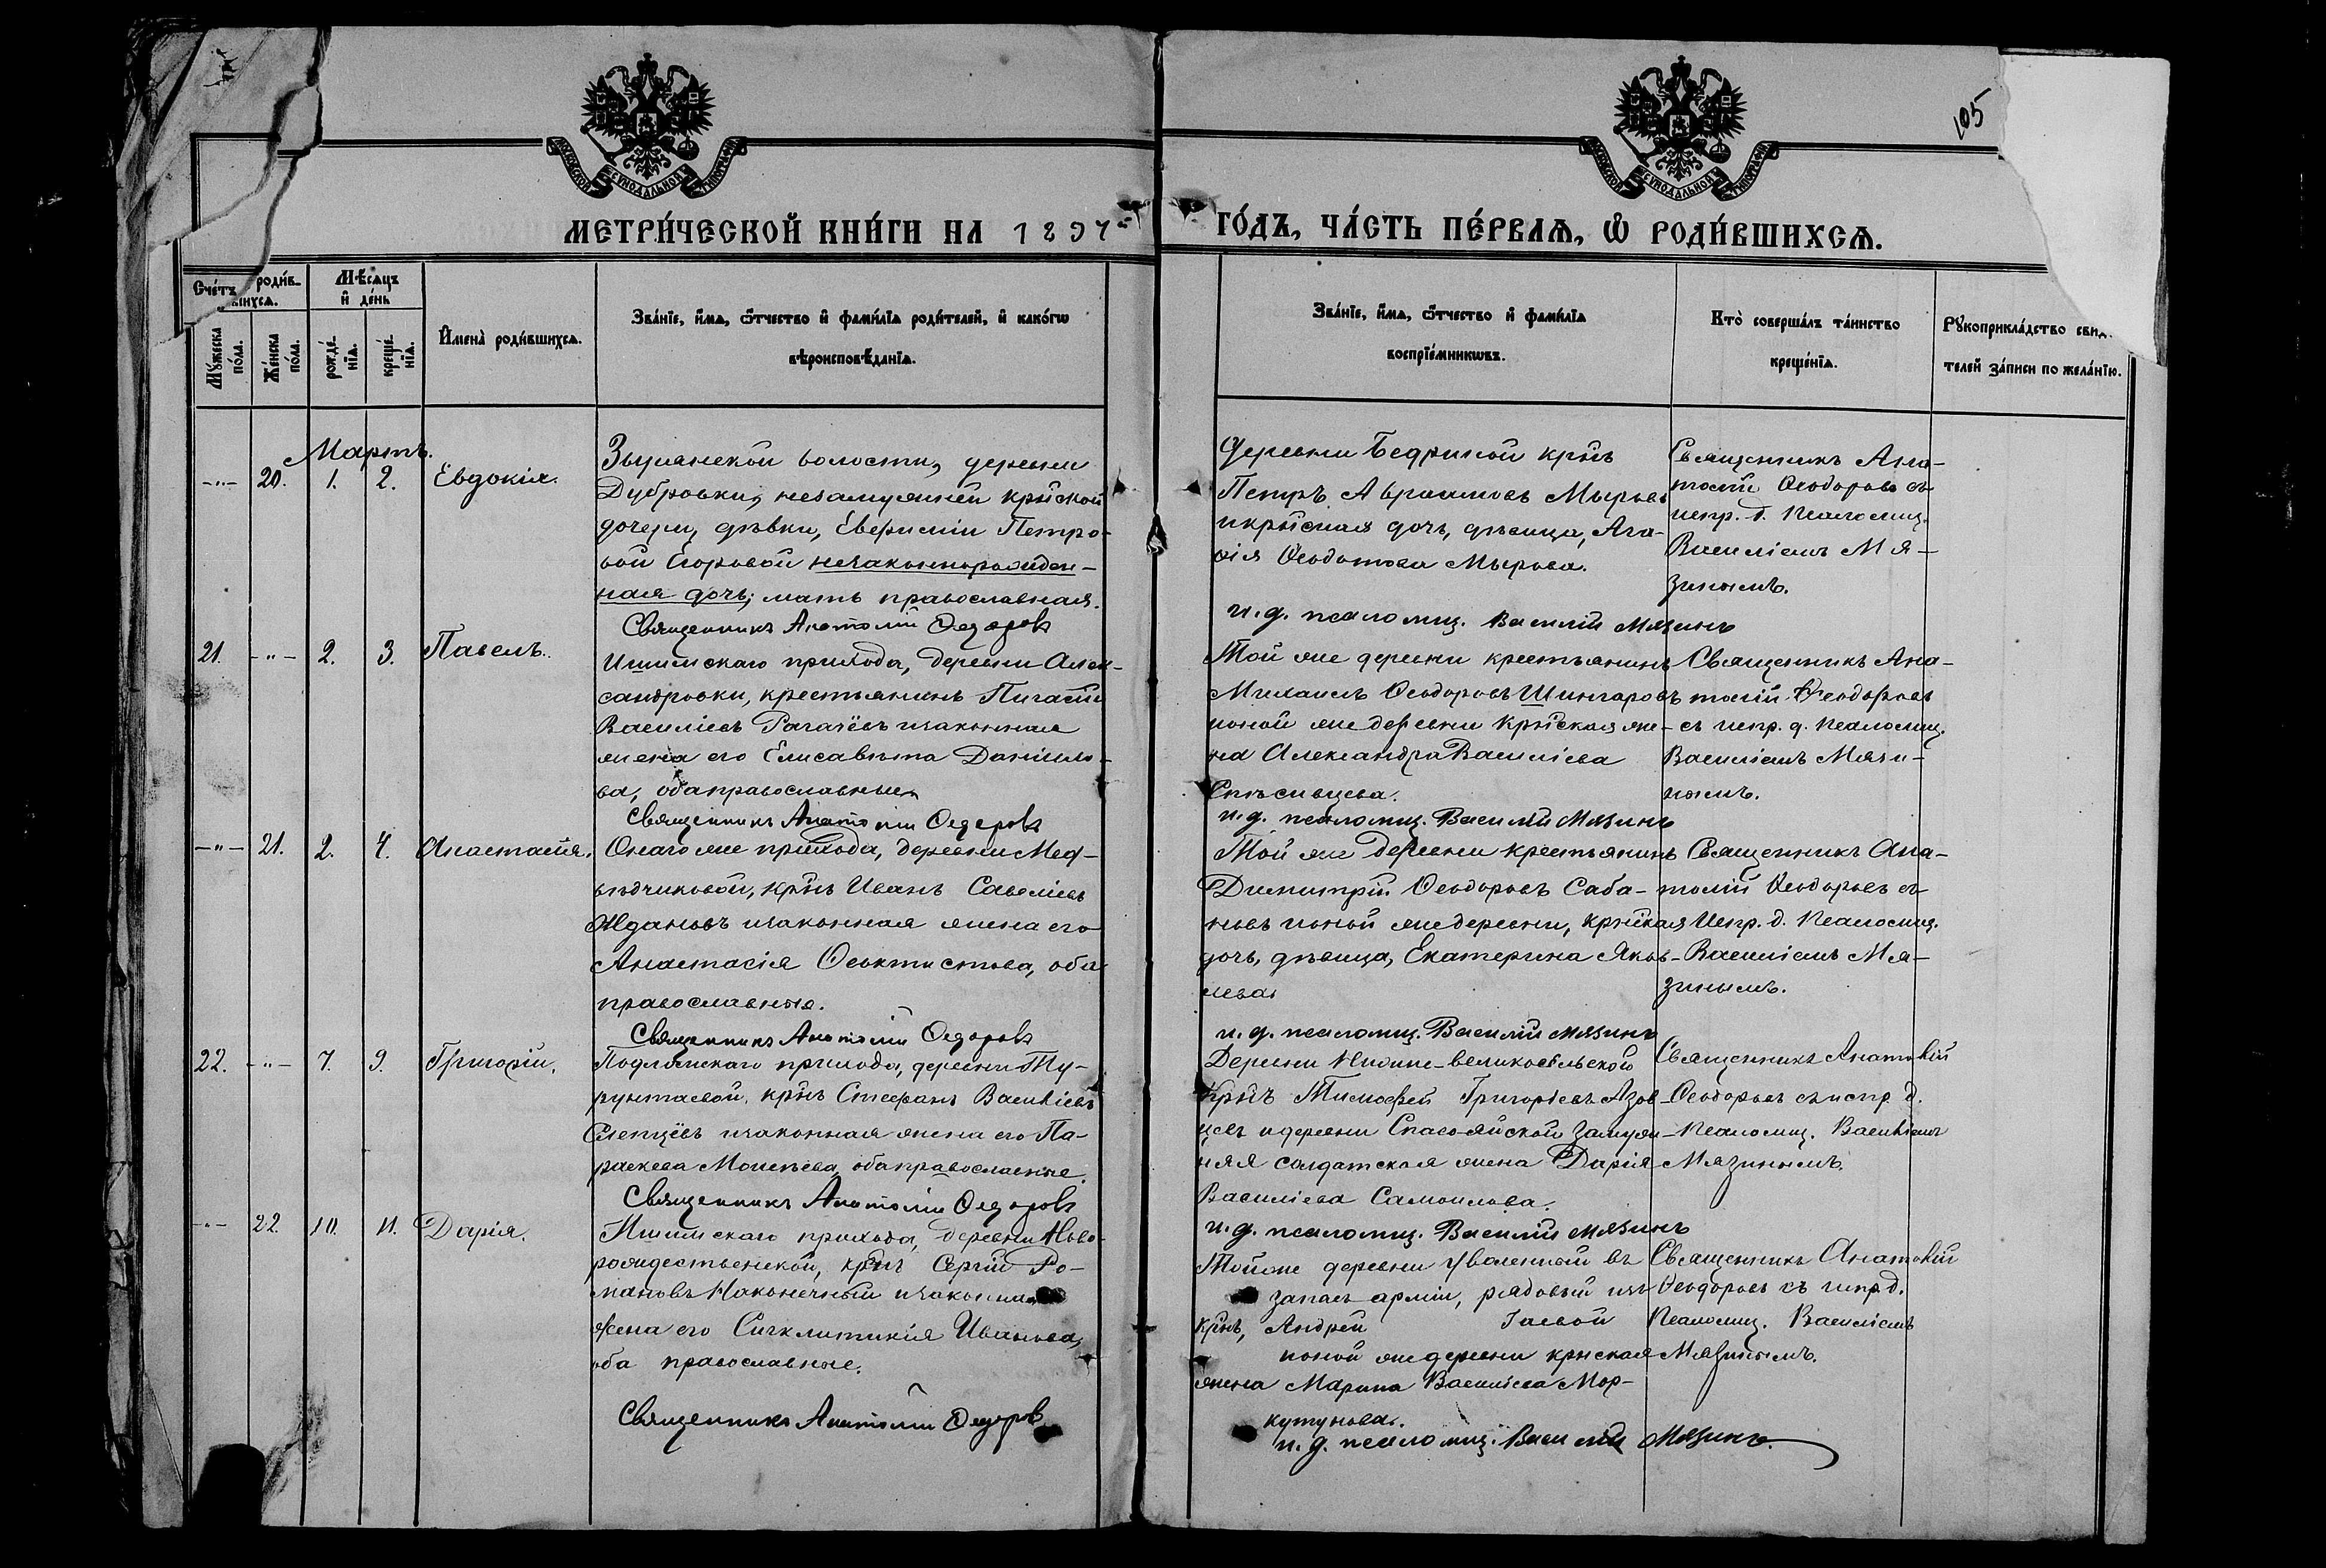 105
МОСКОВСКОЙ СѴНОДАЛЬНОЙ ТИПОГРАФІИ
МОСКОВСКОЙ СѴНОДАЛЬНОЙ ТИПОГРАФІИ
МЕТРИ́ЧЕСКОЙ КНИ́ГИ НА 1897 ГО́ДЪ, ЧА́СТЬ ПЕ́РВАѦ, Ѿ РОДИ́ВШИХСѦ.
Сче́тъ роди́в-
шихсѧ.
Мꙋ́жеска по́ла.
Же́нска по́ла.
Мѣ́сѧцъ и҆ де́нь
рожде́нїѧ.
креще́нїѧ.
И҆мена̀ роди́вшихсѧ.
Зва́нїе, и҆́мѧ, ѻ҆́тчество и҆ фами́лїѧ роди́телей, и҆ како́гѡ
вѣроисповѣ́данїѧ.
Зва́нїе, и҆́мѧ, ѻ҆́тчество и҆ фами́лїѧ
воспрїе́мникѡвъ.
Кто̀ соверша́лъ та́инство
креще́нїѧ.
Рꙋкоприкла́дство свид.
телей за́писи по жела́нїю.
Мартъ.
-"- 20. 1. 2. Евдокія.
Зырянской волости, деревни
Дубровки, незамужней кр̃ской
дочери, дѣвки, Евфиміи Петро-
вой Егоровой незаконнорожден-
ная дочь; мать православная.
Священникъ Анатолій Ѳедоровъ
Деревни Бедриной кр̃нъ
Петръ Авраамовъ Мыровъ
и кр̃ская дочь, дѣвица, Ага-
ѳія Ѳеодотова Мырова.
и. д. псаломщ. Василій Мязинъ
Священникъ Ана-
толій Ѳеодоровъ съ
испр. д. Псаломщ.
Василіемъ Мя-
зинымъ.
21. -"- 2. 3. Павелъ.
Ишимскаго прихода, деревни Алек-
сандровки, крестьянинъ
Василіевъ Рагачёвъ и законная
жена его Елисавета Даніило-
ва, оба православные
Священникъ Анатолій Ѳедоровъ
Той же деревни крестьянинъ
Михаилъ Ѳеодоровъ Шингаровъ
и оной же деревни кр̃ская же-
на Александра Василіева
Спѣсивцева.
и. д. псаломщ. Василій Мязинъ
Священникъ Ана-
толій Ѳеодоровъ
съ испр. д. Псаломщ.
Василіемъ Мязи-
нымъ.
-"- 21. 2. 4. Анастасія.
Онаго же прихода, деревни Мед-
вѣдчиковой, кр̃нъ Иванъ Савеліевъ
Ждановъ и законная жена его
Анастасія Ѳеоктистова, оба
православные.
Священникъ Анатолій Ѳедоровъ
Той же деревни крестьянинъ
Димитрій Ѳеодоровъ Саба-
новъ и оной же деревни, кр̃ская
дочь, дѣвица, Екатерина Яков-
лева.
и. д. псаломщ. Василій Мязинъ
Священникъ Ана-
толій Ѳеодоровъ съ
Испр. д. Псаломщ.
Василіемъ Мя-
зинымъ.
22. -"- 7. 9. Григорій.
Подломскаго прихода, деревни Ту-
рунтаевой, кр̃нъ Стефанъ Василіевъ
Слепцёвъ и законная жена его Па-
раскева Моисѣева, оба православные.
Священникъ Анатолій Ѳедоровъ
Деревни Нижне-великосельской
кр̃нъ Тимофей Григоріевъ Азов-
цевъ и деревни Спасо-яйской замуж-
няя солдатская жена Дарія
Василіева Самоилова.
и. д. псаломщ. Василій Мязинъ
Священникъ Анатолій
Ѳеодоровъ съ испр. д.
Псаломщ. Василіемъ
Мязинымъ.
-"- 22. 10. 11. Дарія.
Ишимскаго прихода, деревни Ново-
рождественской, кр̃нъ Сергій Ро-
мановъ Наконечный и законная
жена его Сигклитикія Иванова,
оба православные.
Священникъ Анатолій Ѳедоровъ
Той же деревни уволенный въ
запасъ арміи, рядовый изъ
кр̃нъ, Андрей Гаевой
и оной же деревни кр̃ская
жена Марина Василіева Мор-
кутунова.
и. д. псаломщ. Василій Мязинъ.
Священникъ Анатолій
Ѳеодоровъ съ испр. д.
Псаломщ. Василіемъ
Мязинымъ.